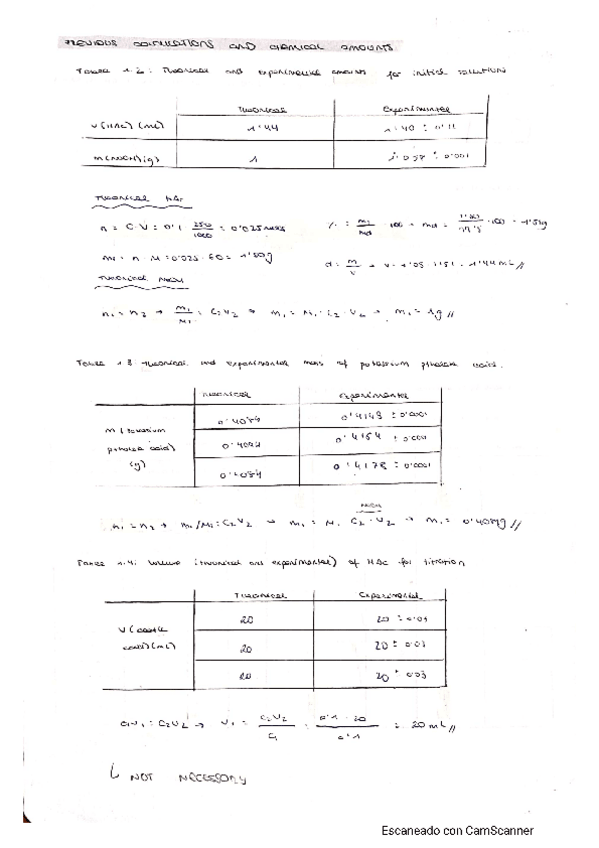 PREVIOUS CALCULATIONS AND CHEMICAL AMOUNTS
Table 1.2: Theorical and experimental amounts for initial solutions
Theorical Experimental
V(HAc)(mL) 1'44 1'40 ±
m(NaOH)(g) 1 ± 0'001
Theorical HAc
n = C·V = 0'1 · 250/1000 = 0'025 moles
m = n · M = 0'025 · 60 = 1'50g
1'44 mL //
Theorical NaOH
n₁ = n₂ → m₁/M₁ = C₂V₂ → m₁ = M₁ · C₂ · V₂ → m₁ = 1g //
Table 1.3: Theorical and experimental mass of potassium phtalate acid.
Theorical Experimental
m (potassium phtalate acid) (g)
0'4149 ± 0'0001
0'4164 ±
0'4084 0'4178 ± 0'0001
NaOH
n₁ = n₂ → m₁/M₁ = C₂V₂ → m₁ = M₁ C₂ · V₂ → m₁ = 0'4084g //
Table 1.4: Volume (theorical and experimental) of HAc for titration
Theorical Experimental
V (acetic acid) (mL)
20 20 ± 0'03
20 20 ± 0'03
20 20 ± 0'03
C₁V₁ = C₂V₂ → V₁ = C₂V₂/C₁ = 0'1 · 20/0'1 = 20 mL //
NOT NECESSARY
Escaneado con CamScanner